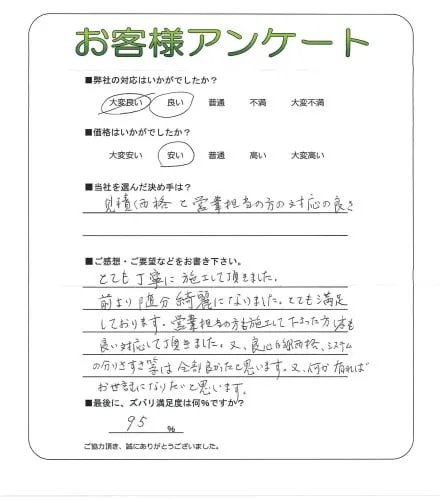 お客様アンケート
■弊社の対応はいかがでしたか?
大変良い 良い 普通 不満 大変不満
■価格はいかがでしたか?
大変安い 安い 普通 高い 大変高い
■当社を選んだ決め手は?
見積価格と営業担当の方の対応の良さ
■ご感想・ご要望などをお書き下さい。
とても丁寧に施工して頂きました。
前より随分綺麗になりました。とても満足
しております。営業担当の方も施工して下さった方
良い対応して頂きました。又、良心的価格、システム
の分りさすさ等は全部良かったと思います。又、何か有れば
お世話になりたいと思います。
■最後に、ズバリ満足度は何%ですか?
95 %
ご協力頂き、誠にありがとうございました。